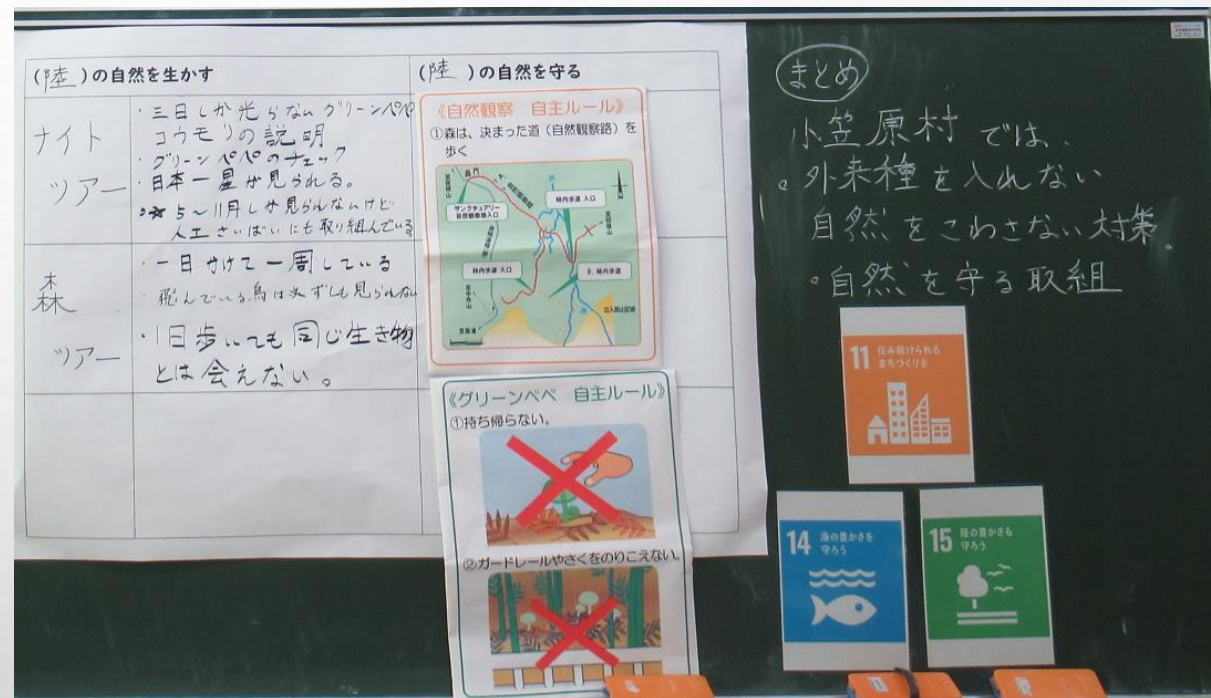 (陸)の自然を生かす
(陸)の自然を守る
ナイト
ツアー
・三日しか光らないグリーンペペ
コウモリの説明
・グリーンペペのチェック
・日本一星が見られる。
5~11月しか見られないけど
人工さいばいにも取り組んでいる。
森
ツアー
・一日かけて一周している
飛んでいる鳥は必ずしも見られない
・1日歩いても同じ生き物
とは会えない。
《自然観察 自主ルール》
①森は、決まった道(自然観察路)を
歩く
サンクチュアリー
自然観察路入口
林内歩道 入口
林内歩道 入口
B. 林内歩道
立入禁止区域
《グリーンペペ 自主ルール》
①持ち帰らない。
②ガードレールやさくをのりこえない。
まとめ
小笠原村では、
。外来種を入れない
自然をこわさない対策。
・自然を守る取組
11 住み続けられる
まちづくりを
14 海の豊かさを
守ろう
15 陸の豊かさも
守ろう